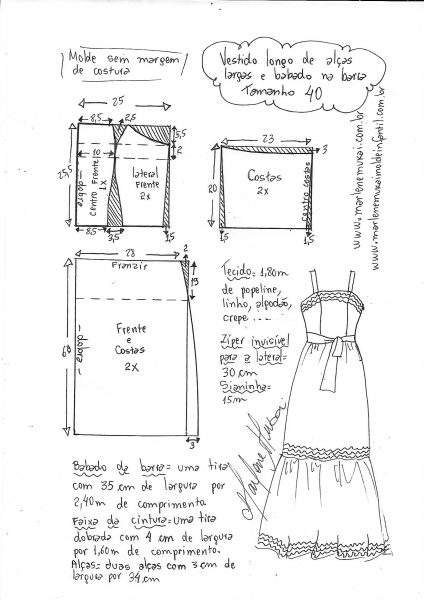 Molde sem margem
de costura
Vestido longo de alças
largas e babado na barra
Tamanho 40
25
8,5
2,5
5,5
2
10
25,5
dobra
Centro Frente
1x
lateral
Frente
2x
8,5
3,5
1,5
23
3
20
Costas
2x
Centro costas
1,5
1,5
www.marlenemukai.com.br
www.marlenemukaimoldeinfantil.com.br
28
2
Franzir
19
68
dobra
Frente
e
Costas
2x
3
Tecido=1,80m
de popeline,
linho, algodão,
crepe ....
Ziper invisível
para a lateral=
30 cm
Sianinha=
15m
Marlene Mukai
Babado da barra= uma tira
com 35 cm de largura por
2,40m de comprimento
Faixa da cintura=uma tira
dobrada com 4 cm de largura
por 1,60m de comprimento.
Alças= duas alças com 3 cm de
largura por 34 cm